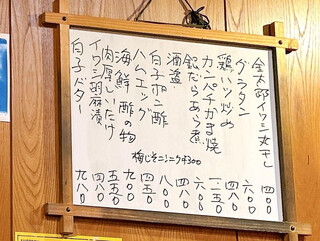 金太郎イワシ丸干し 四〇〇
グラタン 六〇〇
鶏いり炒め 四八〇
カンパチかま焼 六〇〇
銀だらあら煮 一二五〇
酒盗 四八〇
白子ポン酢 八〇〇
ハムエッグ 四五〇
海鮮酢の物 九〇〇
肉厚しいたけ 五五〇
イワシ胡麻漬 四五〇
白子バター 九八〇
梅じそニンニク 4300